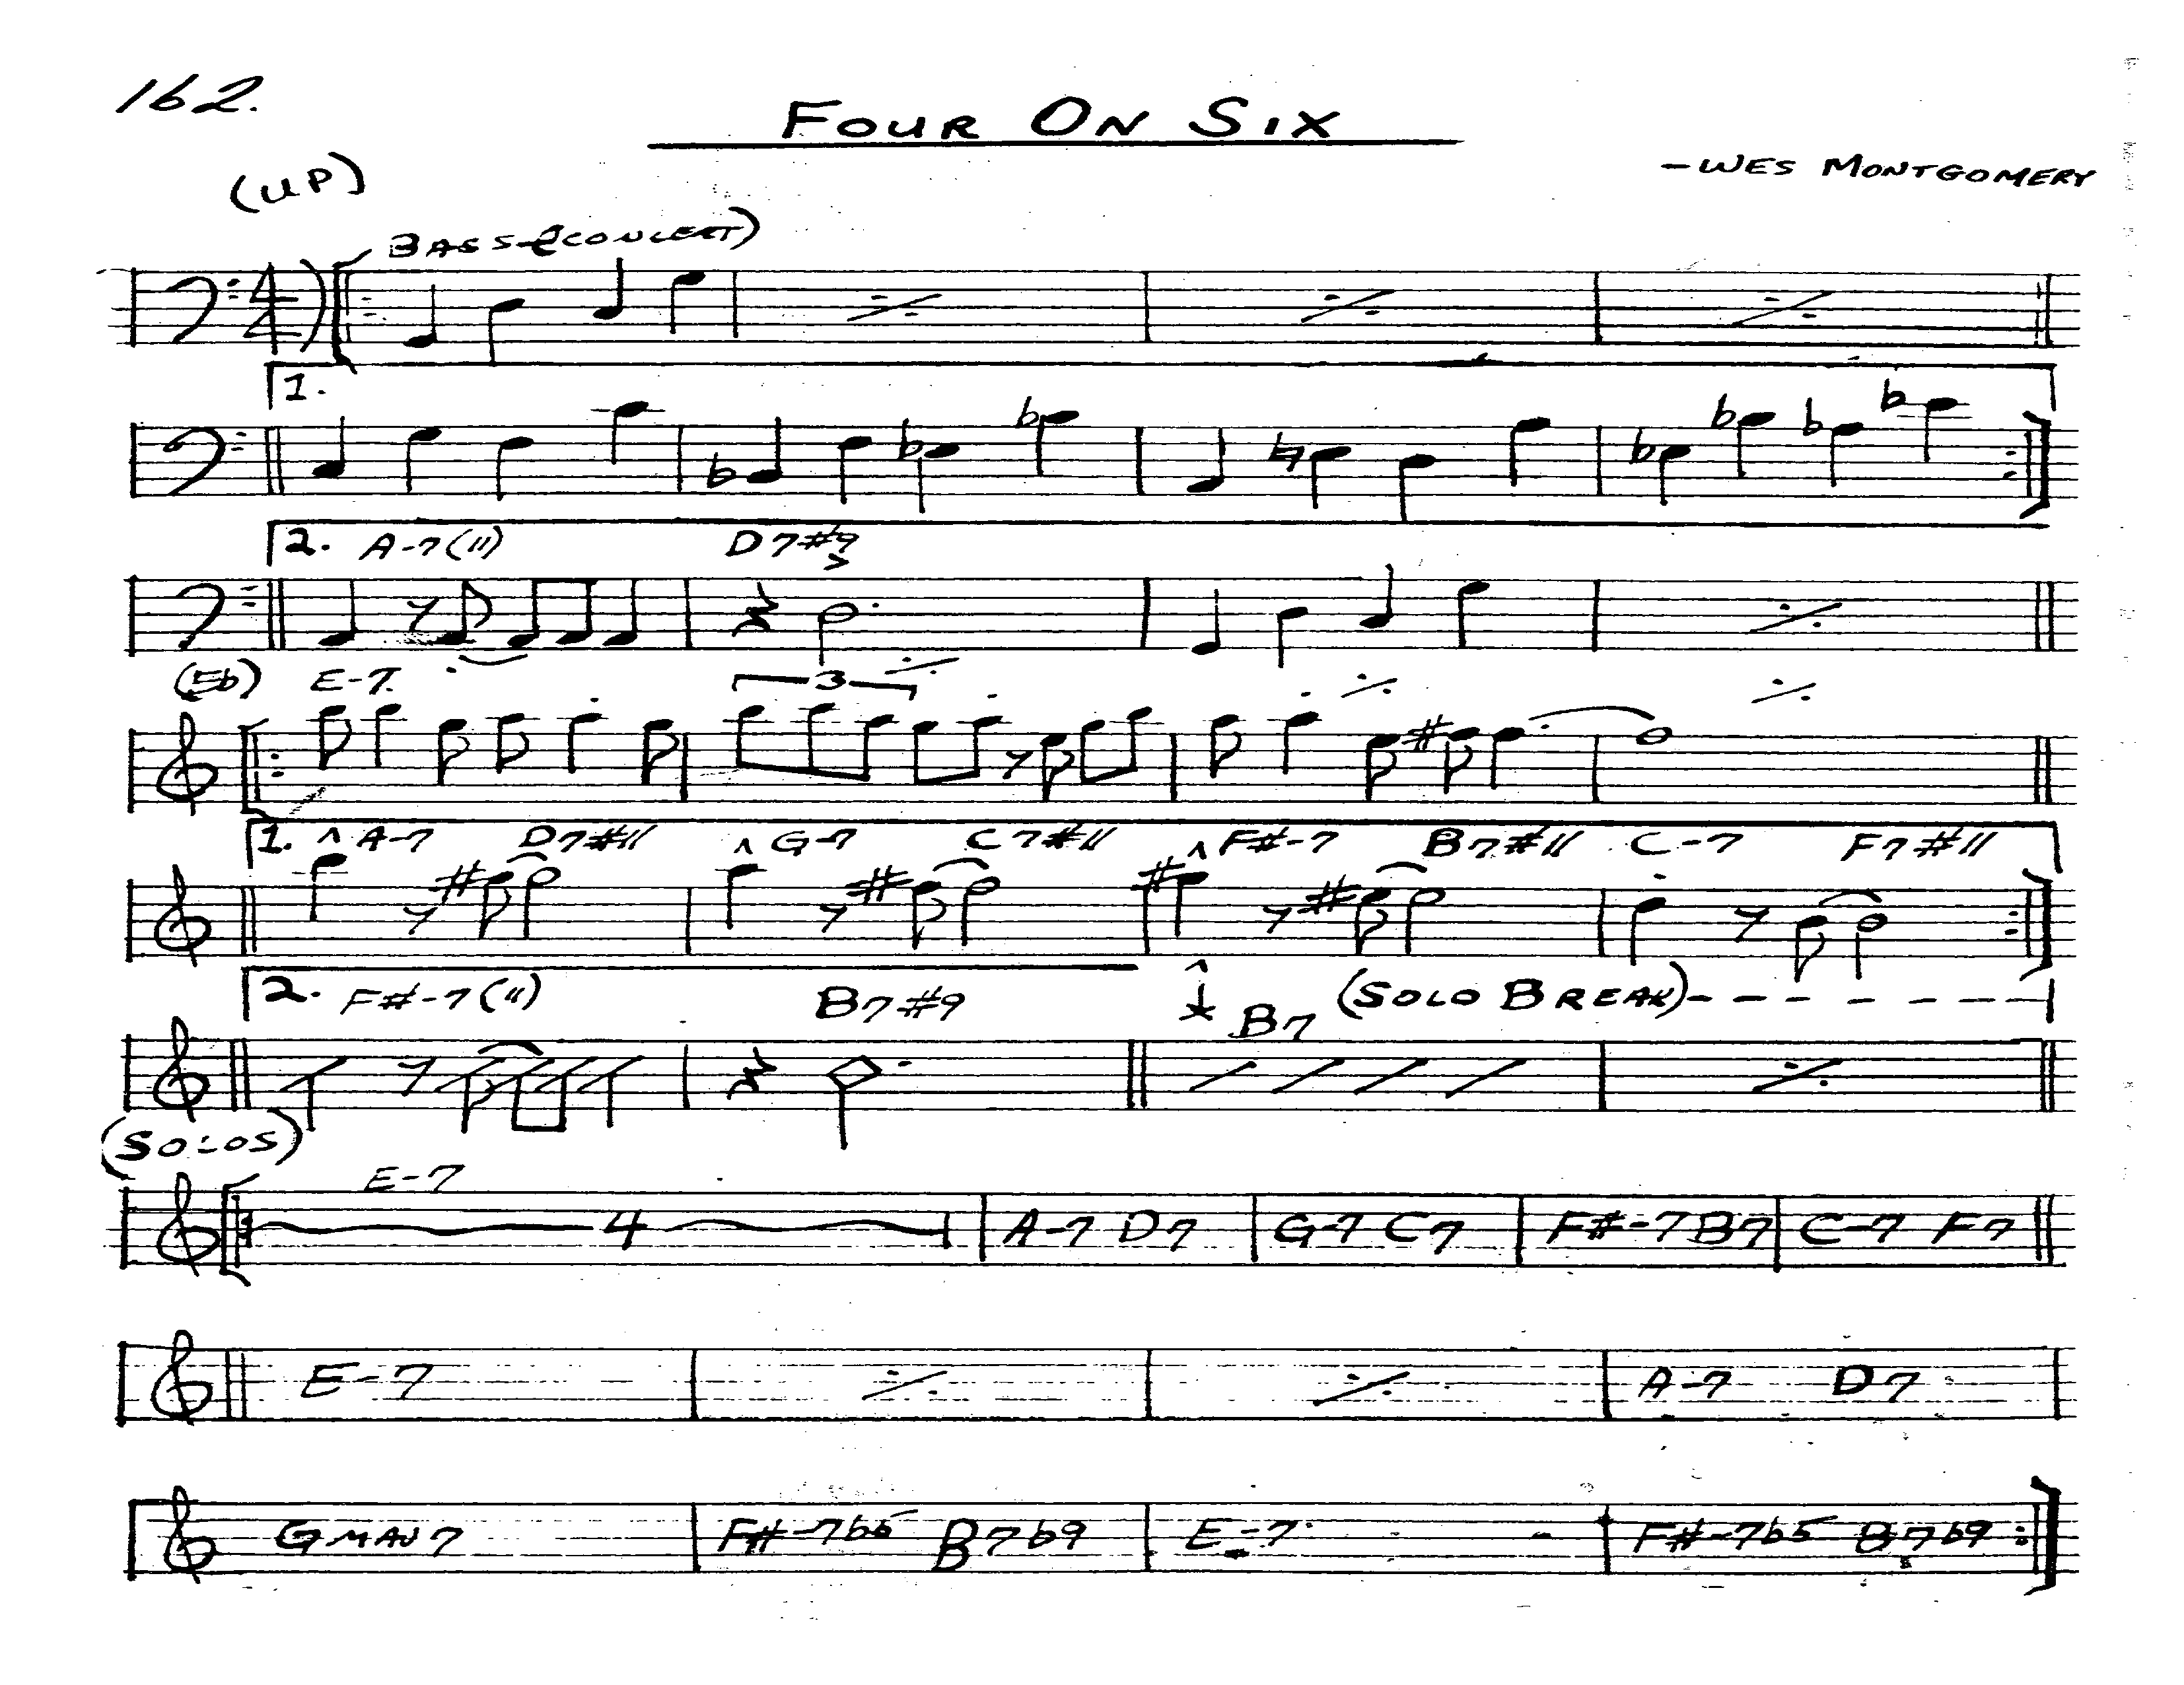 162.
FOUR ON SIX
(UP)
- WES MONTGOMERY
BASS (CONCERT)
4/4
1.
2. A-7(11) D7#9
(Eb) E-7
3
1. A-7 D7#11 G-7 C7#11 F#-7 B7#11 C-7 F7#11
2. F#-7(11) B7#9 B7 (SOLO BREAK)
(SOLOS)
E-7
4 A-7 D7 G-7 C7 F#-7 B7 C-7 F7
E-7 A-7 D7
GMAJ7 F#-7b5 B7b9 E-7 F#-7b5 B7b9